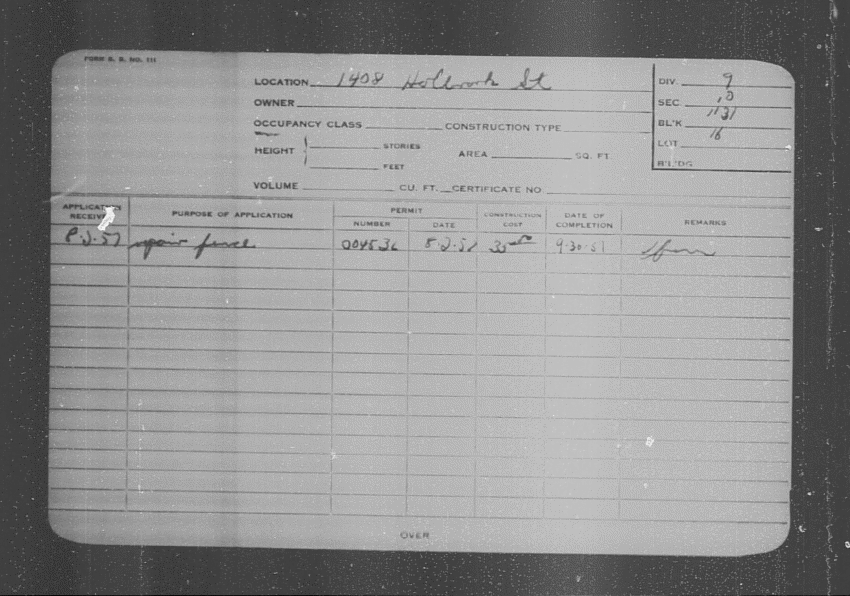 FORM B. B. NO. 111
LOCATION 1408 Holbrook St
DIV. 9
OWNER
SEC. 10
OCCUPANCY CLASS CONSTRUCTION TYPE
BL'K 1131
HEIGHT STORIES
LOT 16
AREA SQ. FT.
FEET
B'L'DG
VOLUME CU. FT. CERTIFICATE NO.
APPLICATION RECEIVED PURPOSE OF APPLICATION PERMIT NUMBER DATE CONSTRUCTION COST DATE OF COMPLETION REMARKS
8.2.51 repair fence 004536 8.2.51 35 9.30.51
OVER